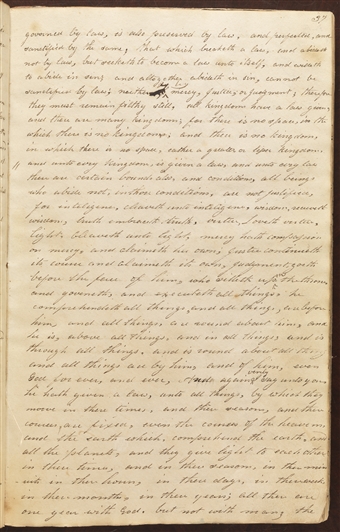 37
governed by law, is also preserved by law, and perfected, and
sanctified by the same, that which breaketh a law, and abideth
not by law, but seeketh to become a law unto itself, and willeth
to abide in sin, and altogether abideth in sin, cannot be
sanctified by law; neither by mercy, justice, or judgment; therefore
they must remain filthy still, all kingdoms have a law given,
and there are many kingdoms; for there is no space, in the
which there is no kingdom; and there is no kingdom,
in which there is no space, either a greater or lesser kingdom.
and unto every kingdom, is given a law, and unto every law
there are certain bounds also, and conditions, all beings
who abide not, in those conditions, are not justified,
for intelegence, cleaveth unto intelegence, wisdom, receiveth
wisdom, truth embraceth truth, virtue, loveth virtue,
light, cleaveth unto light, mercy hath compassion
on mercy, and claimeth her own, justice continueth
its course and claimeth its own, judgment, goeth
before the face of him, who sitteth upon the throne,
and governeth, and executeth all things: he
comprehendeth all things, and all things, are before
him, and all things, are round about him, and
he is, above all things, and in all things and is
through all things, and is round about all things,
and all things are by him, and of him, even
God for ever, and ever, And again verily I say unto you
he hath given a law, unto all things, by which they
move in there times, and their seasons, and their
courses, are fixed, even the courses of the heavens,
and the earth which, comprehend the earth, and
all the planets, and they give light to each other
in their times, and in their seasons, in their minutes
in their hours, in their days, in their weeks,
in their months, in their years; all these are
one year with God. but not with man, the